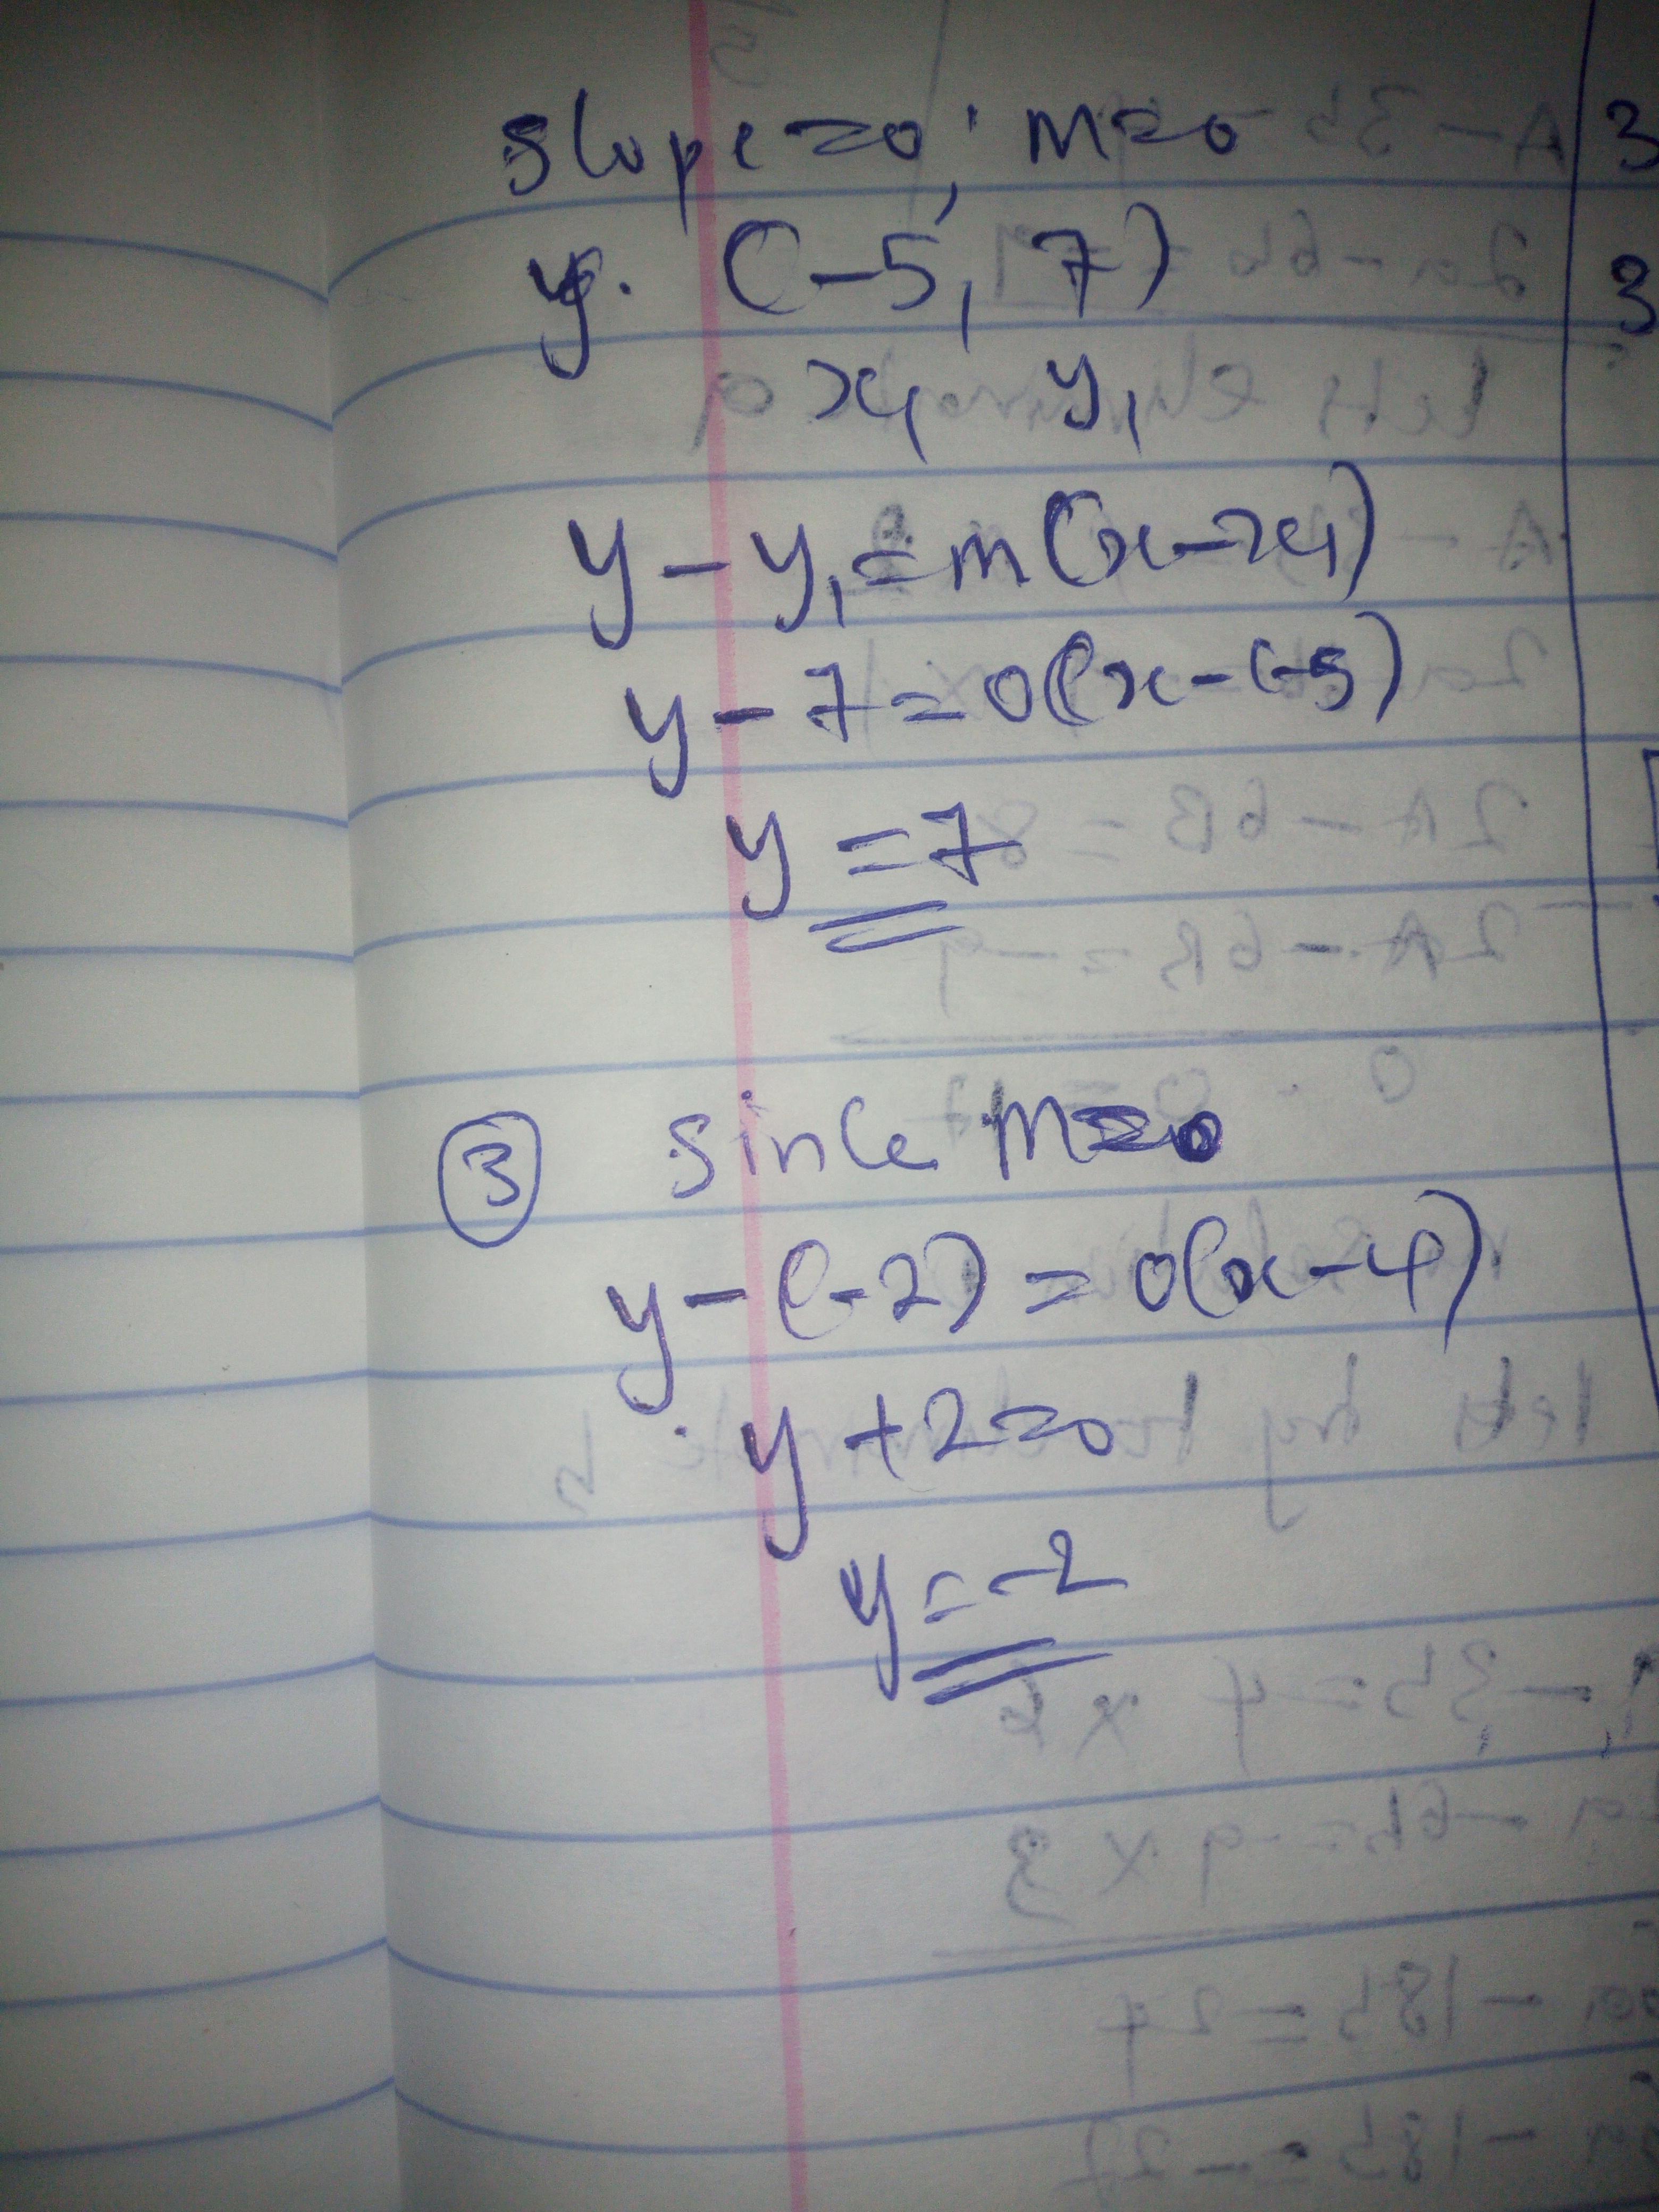 slope=0, m=0
y. (-5, 7)
x₁ y₁
y-y₁=m(x-x₁)
y-7=0(x-(-5)
y=7
③ since m=0
y-(-2)=0(x-4)
y+2=0
y=-2
3
3